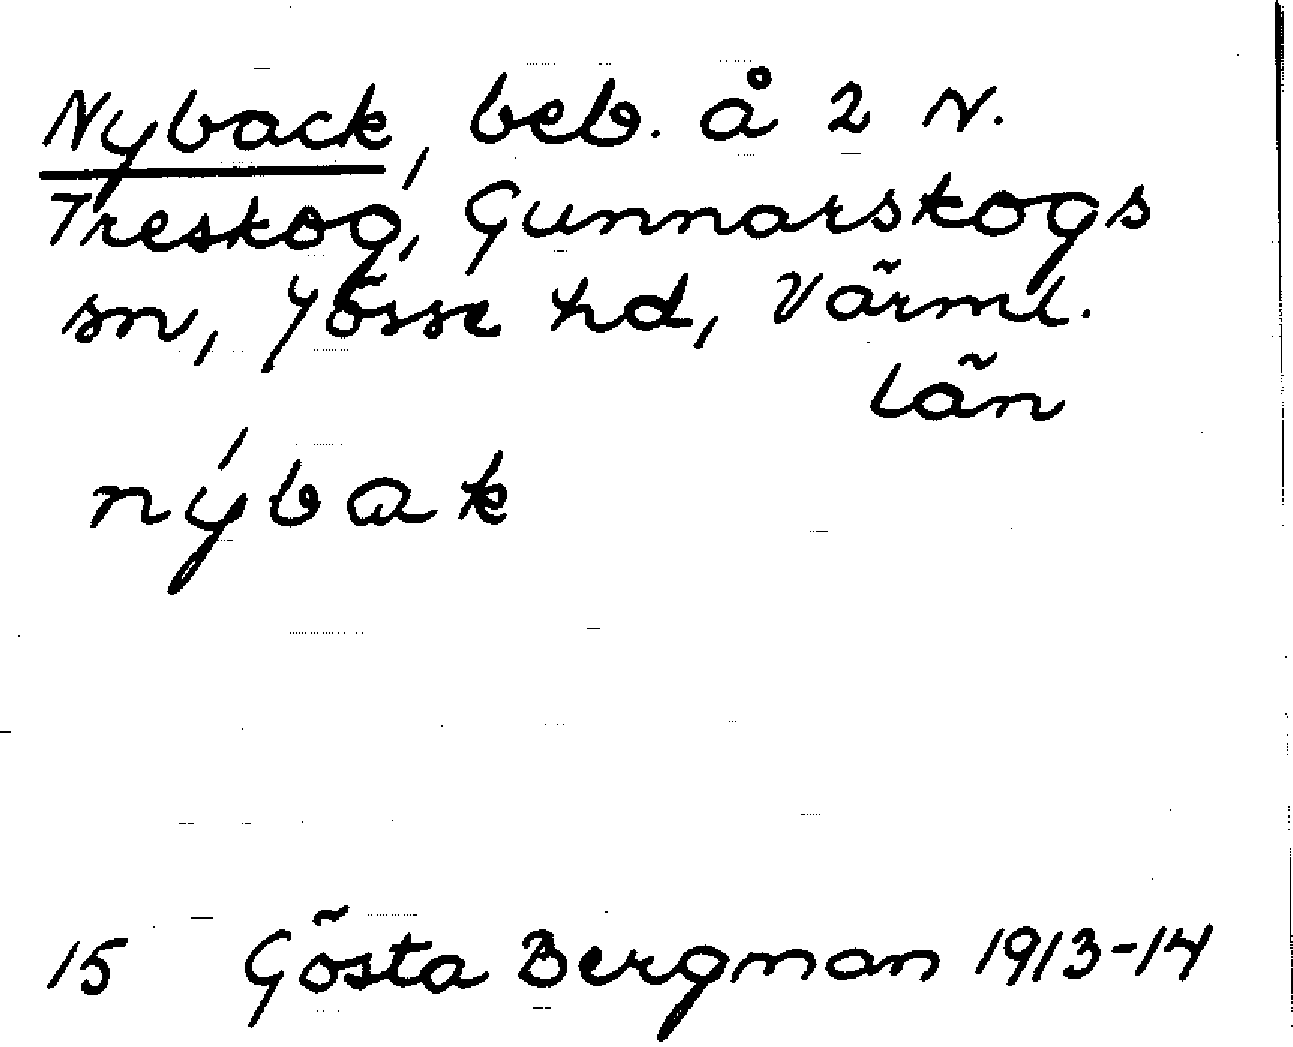 Nyback, beb. å 2 N.
Treskog, Gunnarskogs
sn, Jösse hd, Värml.
län
nýbak
15 Gösta Bergman 1913-14